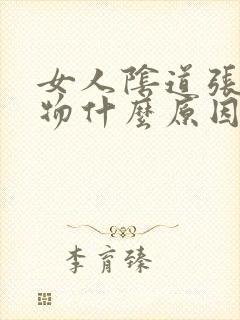 女人陰道張
物什麼原因
李育臻